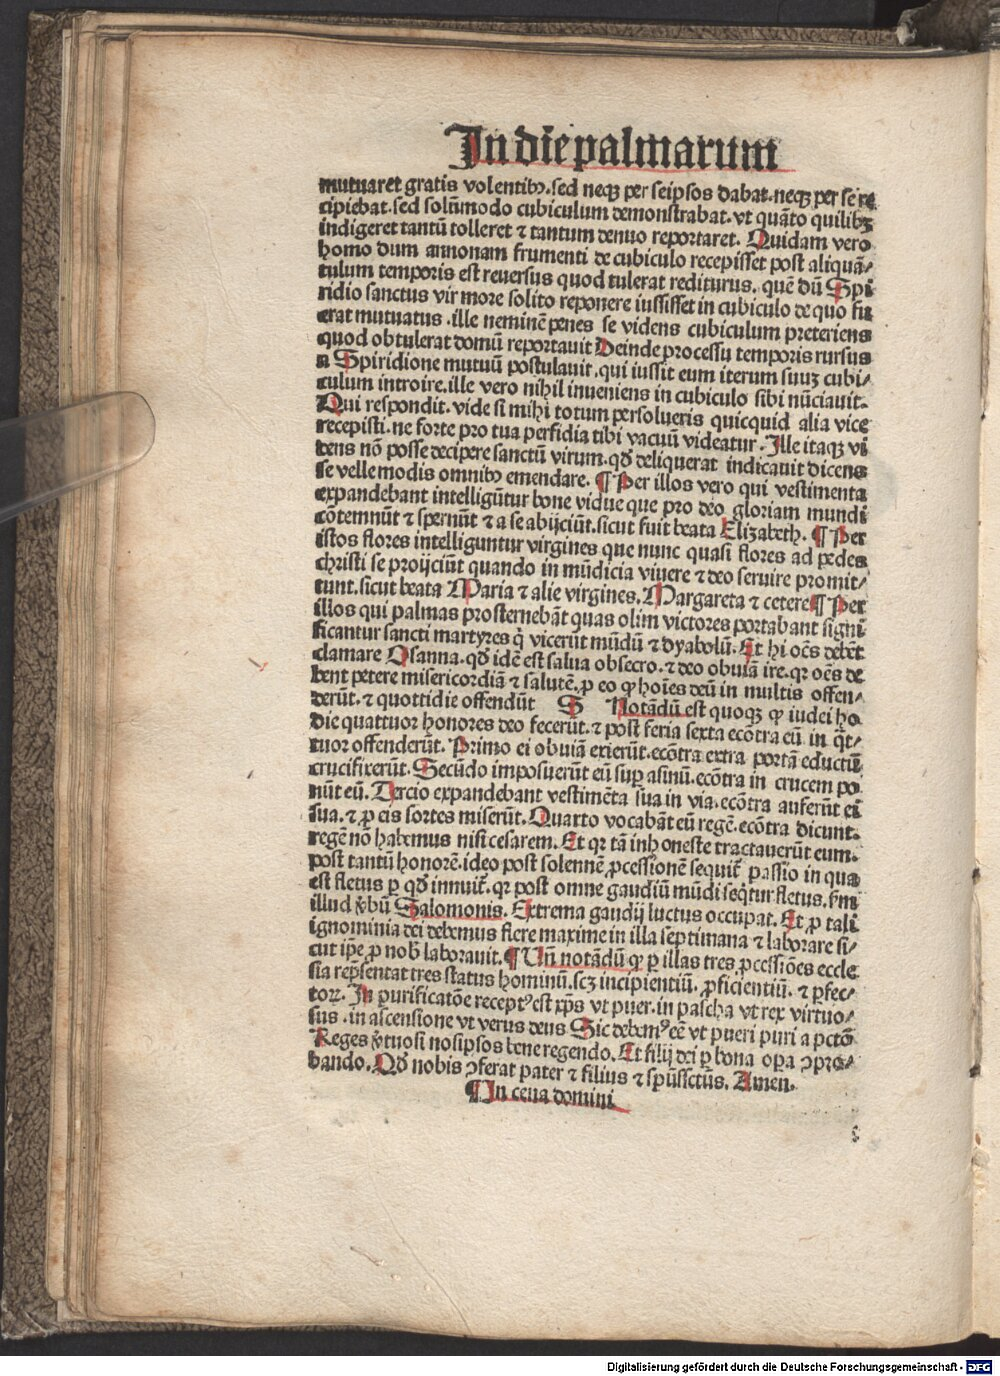 In die palmarum
mutuaret gratis volentibꝫ. sed neqꝫ per seipsos dabat. neqꝫ per se re
cipiebat. sed solūmodo cubiculum demonstrabat. vt quāto quilibꝫ
indigeret tantū tolleret ⁊ tantum denuo reportaret. Quidam vero
homo dum annonam frumenti de cubiculo recepisset post aliquā/
tulum temporis est reuersus quod tulerat rediturus. quē dū Spi
ridio sanctus vir more solito reponere iussisset in cubiculo de quo fu
erat mutuatus. ille neminē penes se videns cubiculum preteriens
quod obtulerat domū reportauit Deinde processu temporis rursus
a Spiridione mutuū postulauit. qui iussit eum iterum suuꝫ cubi/
culum introire. ille vero nihil inueniens in cubiculo sibi nūciauit.
Qui respondit. vide si mihi totum persolueris quicquid alia vice
recepisti. ne forte pro tua perfidia tibi vacuū videatur. Ille itaqꝫ vi
dens nō posse decipere sanctū virum. qđ deliquerat indicauit dicens
se velle modis omnibꝫ emendare. ¶ Per illos vero qui vestimenta
expandebant intelligūtur bone vidue que pro deo gloriam mundi
cōtemnūt ⁊ spernūt ⁊ a se abijciūt. sicut fuit beata Elizabeth. ¶ Per
istos flores intelliguntur virgines que nunc quasi flores ad pedes
christi se proijciūt quando in mūdicia viuere ⁊ deo seruire promit/
tunt. sicut beata Maria ⁊ alie virgines. Margareta ⁊ cetere ¶ Per
illos qui palmas prosternebāt quas olim victores portabant signi
ficantur sancti martyres q̄ vicerūt mūdū ⁊ dyabolū. Et hi oēs debēt
clamare Osanna. qđ idē est salua obsecro. ⁊ deo obuiā ire. qꝛ oēs de
bent petere misericordiā ⁊ salutē. ꝓ eo ꝙ hoīes deū in multis offen/
derūt. ⁊ quottidie offendūt S Notādū est quoqꝫ ꝙ iudei ho
die quattuor honores deo fecerūt. ⁊ post feria sexta ecōtra eū in q̄t/
tuor offenderūt. Primo ei obuiā exierūt. ecōtra extra portā eductū
crucifixerūt. Secūdo imposuerūt eū suꝑ asinū. ecōtra in crucem po
nūt eū. Tercio expandebant vestimēta sua in via. ecōtra auferūt ei
sua. ⁊ ꝓ eis sortes miserūt. Quarto vocabāt eū regē. ecōtra dicunt.
regē nō habemus nisi cesarem. Et qꝛ tā inhoneste tractauerūt eum.
post tantū honorē. ideo post solennē ꝓcessionē sequit̄ passio in qua
est fletus ꝑ qđ innuit̄. qꝛ post omne gaudiū mūdi seq̄tur fletus. ẜm
illud v̄bū Salomonis. Extrema gaudij luctus occupat. Et ꝓ tali
ignominia dei debemus flere maxime in illa septimana ⁊ laborare si/
cut ip̄e ꝓ nob̄ laborauit. ¶ Un̄ notādū ꝙ ꝑ illas tres ꝓcessiōes eccle
sia rep̄sentat tres status hominū. scꝫ incipientiū. ꝓficientiū. ⁊ ꝑfec/
toꝝ. In purificatōe receptꝰ est xp̄s vt puer. in pascha vt rex virtuo/
sus. in ascensione vt verus deus Sic debemꝰ eē vt pueri puri a pctō
Reges v̄tuosi nosipsos bene regendo. Et filij dei ꝑ bona oꝑa ꝯpro/
bando. Qđ nobis ꝯferat pater ⁊ filius ⁊ spūssctūs. Amen.
¶ In cena domini
Digitalisierung gefördert durch die Deutsche Forschungsgemeinschaft - DFG